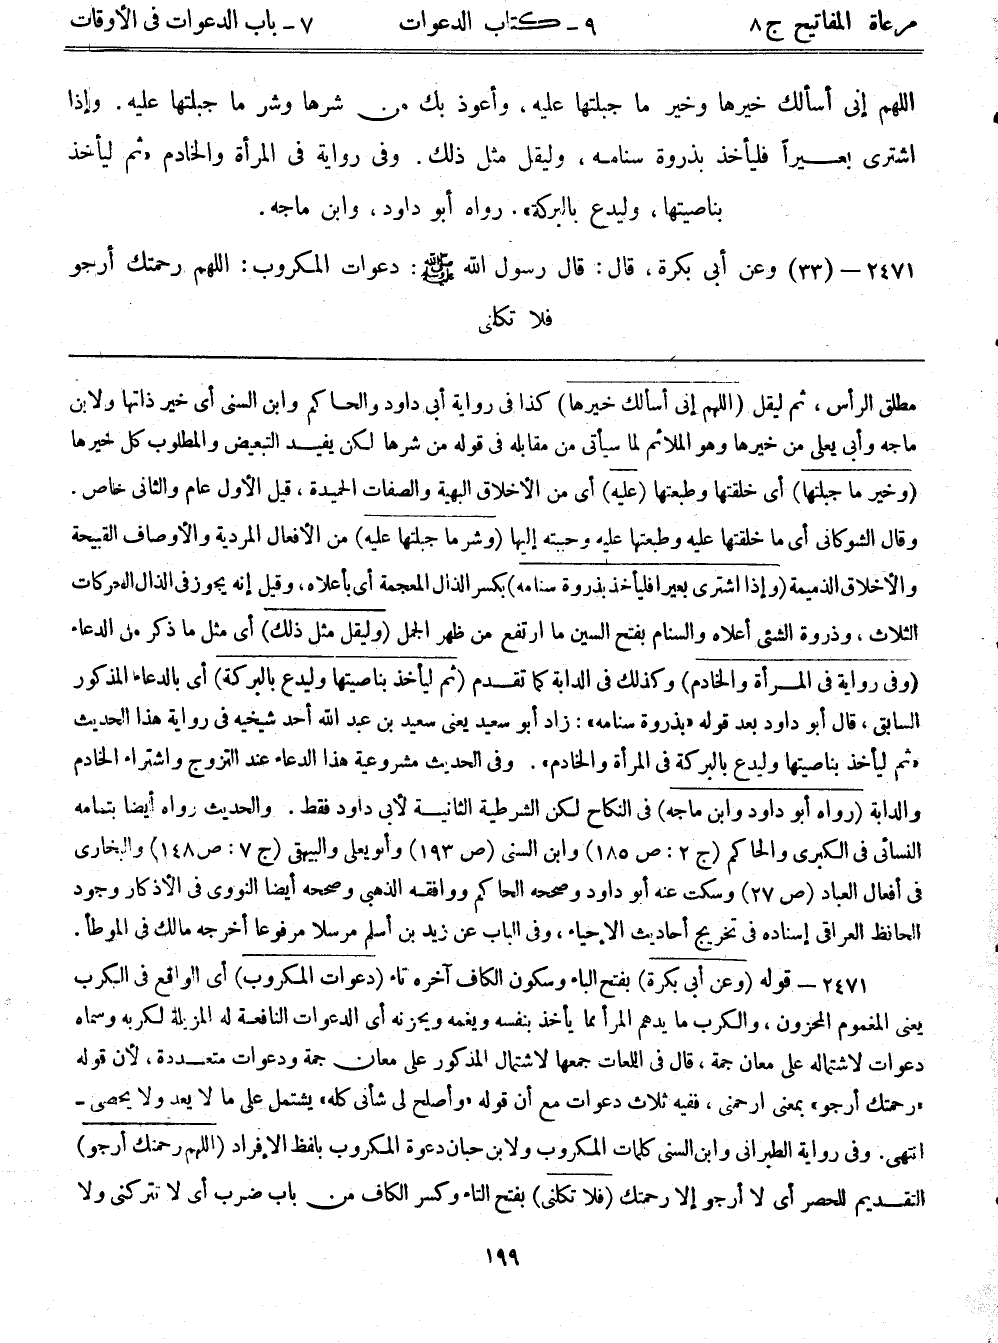 مرعاة المفاتيح ج ٨ ٩ - كتاب الدعوات ٧ - باب الدعوات فى الأوقات
اللهم إنى أسألك خيرها وخير ما جبلتها عليه، وأعوذ بك من شرها وشر ما جبلتها عليه. وإذا
اشترى بعيراً فليأخذ بذروة سنامه، وليقل مثل ذلك. وفى رواية فى المرأة والخادم «ثم ليأخذ
بناصيتها، وليدع بالبركة». رواه أبو داود، وابن ماجه.
٢٤٧١ – (٣٣) وعن أبى بكرة، قال: قال رسول الله ﷺ: دعوات المكروب: اللهم رحمتك أرجو
فلا تكلنى
مطلق الرأس، ثم ليقل (اللهم إنى أسألك خيرها) كذا فى رواية أبى داود والحاكم وابن السنى أى خير ذاتها ولابن
ماجه وأبى يعلى من خيرها وهو الملائم لما سيأتى من مقابله فى قوله من شرها لكن يفيد التبعيض والمطلوب كل خيرها
(وخير ما جبلتها) أى خلقتها وطبعتها (عليه) أى من الأخلاق البهية والصفات الحميدة، قيل الأول عام والثانى خاص.
وقال الشوكانى أى ما خلقتها عليه وطبعتها عليه وحببته إليها (وشر ما جبلتها عليه) من الأفعال المردية والأوصاف القبيحة
والأخلاق الذميمة (وإذا اشترى بعيرا فليأخذ بذروة سنامه) بكسر الذال المعجمة أى بأعلاه، وقيل إنه يجوز فى الذال الحركات
الثلاث، وذروة الشئى أعلاه والسنام بفتح السين ما ارتفع من ظهر الجمل (وليقل مثل ذلك) أى مثل ما ذكر من الدعاء
(وفى رواية فى المرأة والخادم) وكذلك فى الدابة كما تقدم (ثم ليأخذ بناصيتها وليدع بالبركة) أى بالدعاء المذكور
السابق، قال أبو داود بعد قوله «بذروة سنامه»: زاد أبو سعيد يعنى سعيد بن عبد الله أحد شيخيه فى رواية هذا الحديث
«ثم ليأخذ بناصيتها وليدع بالبركة فى المرأة والخادم». وفى الحديث مشروعية هذا الدعاء عند التزوج واشتراء الخادم
والدابة (رواه أبو داود وابن ماجه) فى النكاح لكن الشرطية الثانية لأبى داود فقط. والحديث رواه أيضا بتمامه
النسائى فى الكبرى والحاكم (ج ٢: ص ١٨٥) وابن السنى (ص ١٩٣) وأبو يعلى والبيهقى (ج ٧: ص ١٤٨) والبخارى
فى أفعال العباد (ص ٢٧) وسكت عنه أبو داود وصححه الحاكم ووافقه الذهبى وصححه أيضا النووى فى الأذكار وجود
الحافظ العراقى إسناده فى تخريج أحاديث الإحياء، وفى الباب عن زيد بن أسلم مرسلا مرفوعا أخرجه مالك فى الموطأ.
٢٤٧١ – قوله (وعن أبى بكرة) بفتح الباء وسكون الكاف آخره تاء (دعوات المكروب) أى الواقع فى الكرب
يعنى المغموم المحزون، والكرب ما يدهم المرأ مما يأخذ بنفسه ويغمه ويحزنه أى الدعوات النافعة له المزيلة لكربه وسماه
دعوات لاشتماله على معان جمة، قال فى اللعات جمعها لاشتمال المذكور على معان جمة ودعوات متعددة، لأن قوله
«رحمتك أرجو» بمعنى ارحمنى، ففيه ثلاث دعوات مع أن قوله «وأصلح لى شأنى كله» يشتمل على ما لا يعد ولا يحصى -
انتهى. وفى رواية الطبرانى وابن السنى كلمات المكروب ولابن حبان دعوة المكروب بلفظ الإفراد (اللهم رحمتك أرجو)
التقديم للحصر أى لا أرجو إلا رحمتك (فلا تكلنى) بفتح التاء وكسر الكاف من باب ضرب أى لا تتركنى ولا
١٩٩